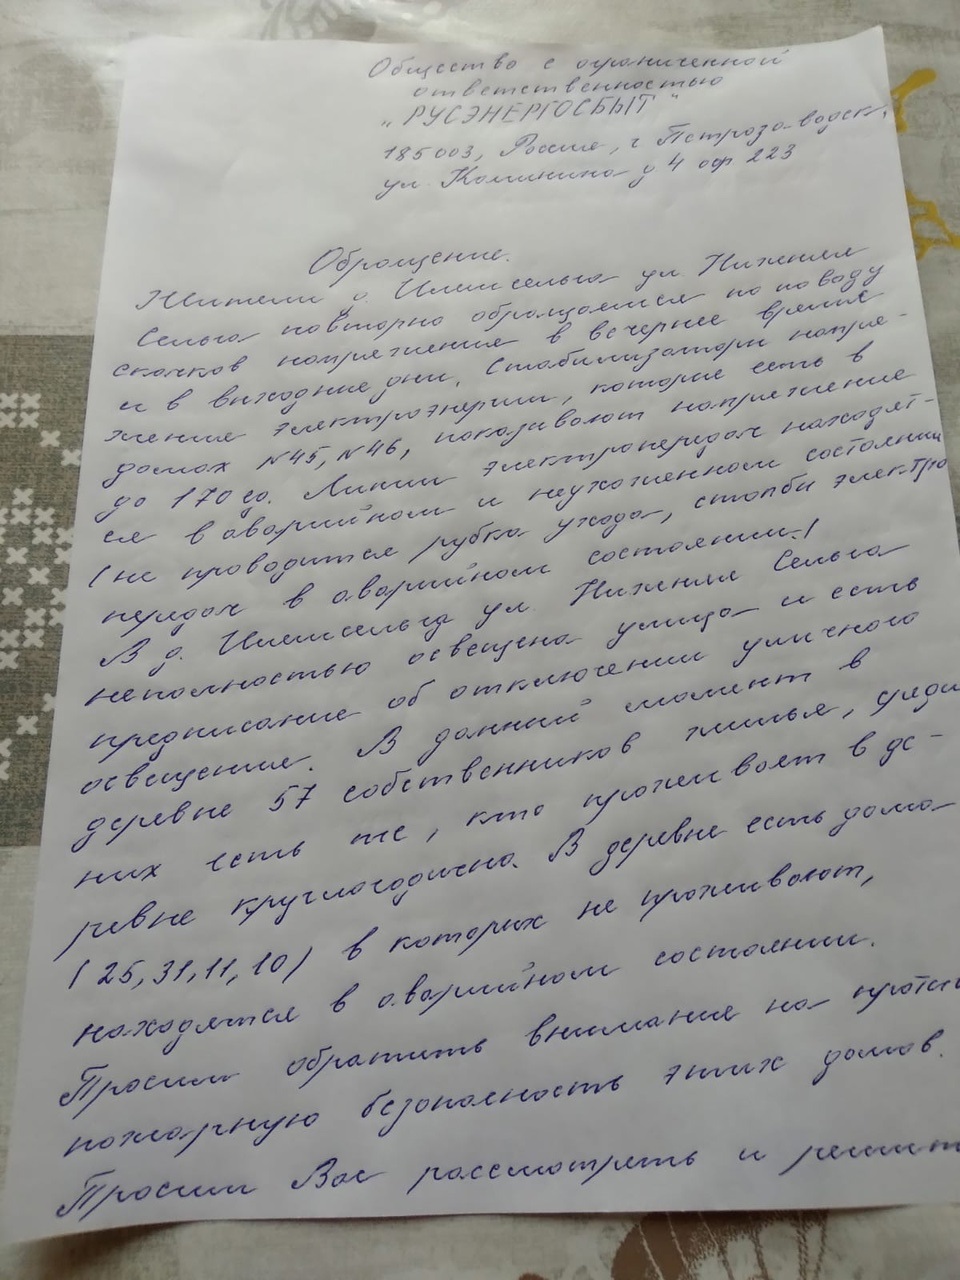 Общество с ограниченной
ответственностью
"РУСЭНЕРГОСБЫТ"
185003, Россия, г Петрозаводск,
ул. Калинина д 4 оф 223
Обращение.
Жители д. Улялега ул. Нижняя
Сельга повторно обращаемся по поводу
скачков напряжения в вечернее время
и в выходные дни. Стабилизаторы напря-
жения электроэнергии, которые есть в
домах N45, N46, показывают напряжение
до 170
Линии электропередач находят-
ся в аварийном и неухоженном состоянии
(не проводится рубка ухода, столбы электро
передач в аварийном состоянии.)
В д. ул. Нижняя Сельга
неполностью освещена улица и есть
предписание об отключении уличного
освещения. В данный момент в
деревне 57 собственников жилья, среди
них есть те, кто проживает в де-
ревне круглогодично. В деревне есть дома
(25, 31, 11, 10) в которых не проживают,
находятся в аварийном состоянии.
Просим обратить внимание на проти
пожарную безопасность этих домов.
Просим Вас рассмотреть и решит